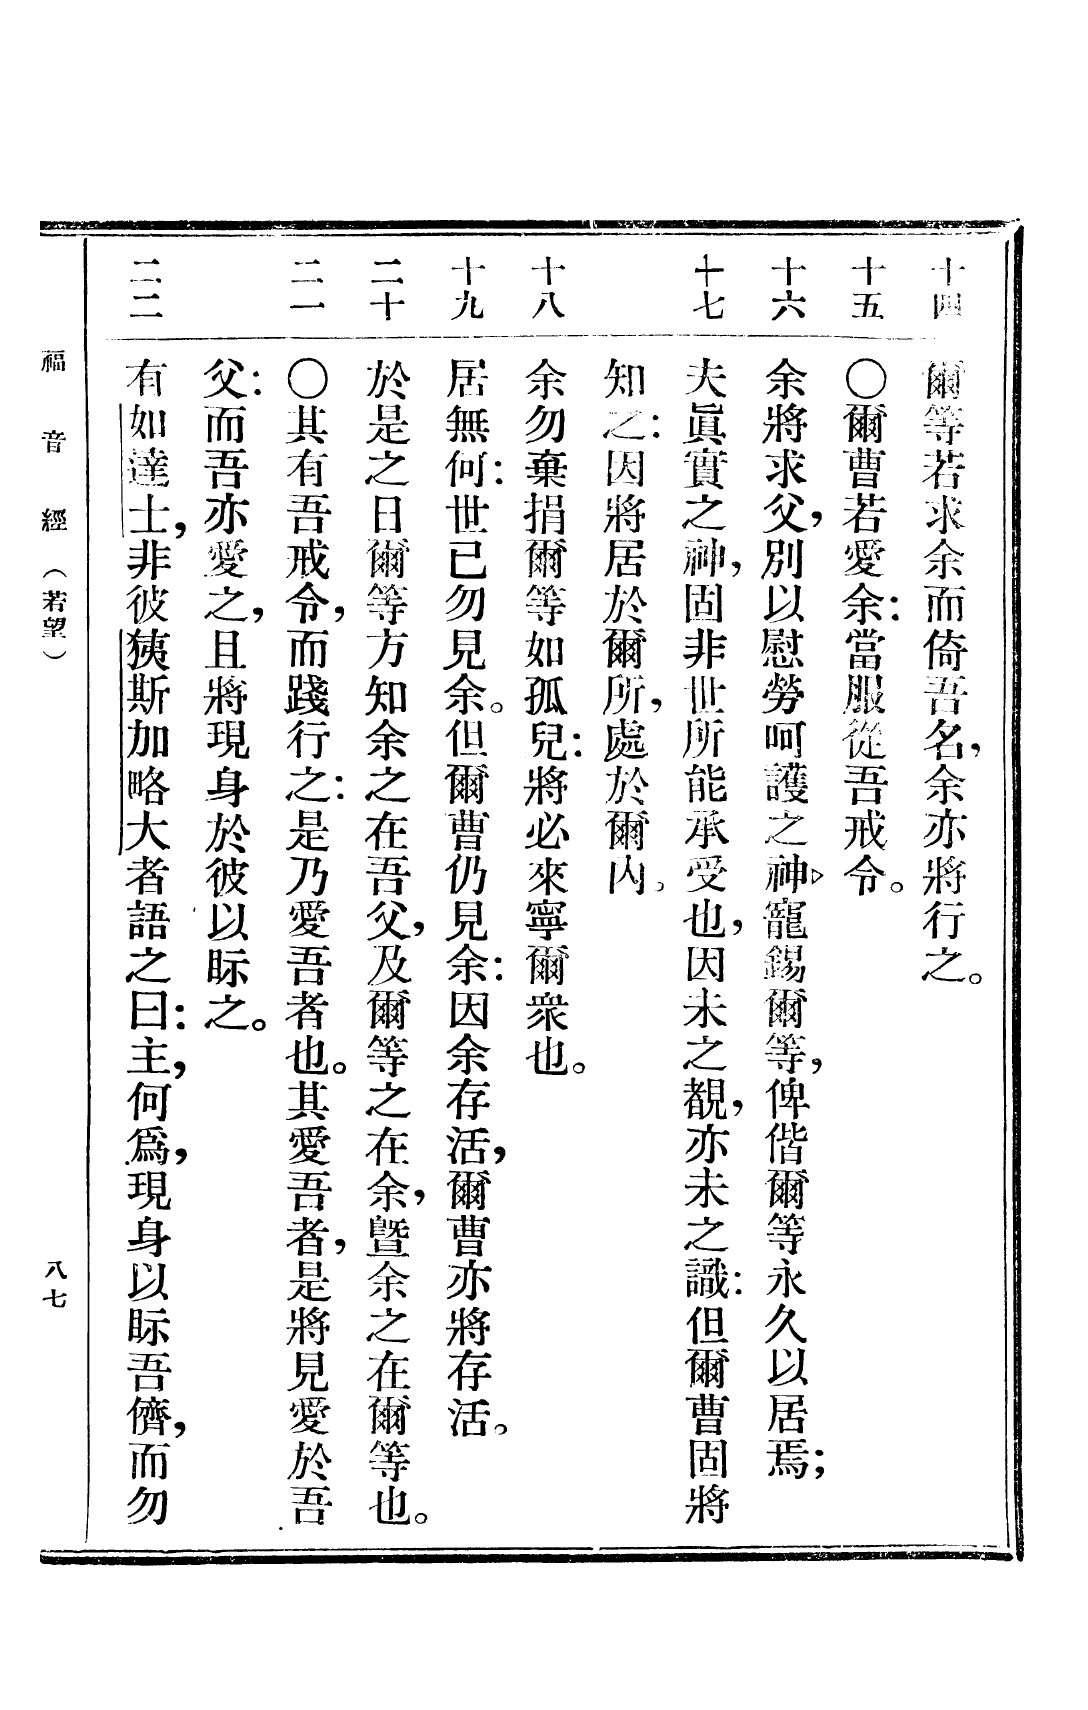 十四 爾等若求余而倚吾名，余亦將行之。
十五 〇爾曹若愛余：當服從吾戒令。
十六 余將求父，別以慰勞呵護之神，寵錫爾等，俾偕爾等永久以居焉；
十七 夫眞實之神，固非世所能承受也，因未之覩，亦未之識：但爾曹固將
知之：因將居於爾所，處於爾內。
十八 余勿棄捐爾等如孤兒：將必來寧爾衆也。
十九 居無何：世已勿見余。但爾曹仍見余：因余存活，爾曹亦將存活。
二十 於是之日爾等方知余之在吾父，及爾等之在余，曁余之在爾等也。
二一 〇其有吾戒令，而踐行之：是乃愛吾者也。其愛吾者，是將見愛於吾
父：而吾亦愛之，且將現身於彼以眎之。
二二 有如達士，非彼狭斯加略大者語之曰：主，何爲，現身以眎吾儕，而勿
福音經（若望） 八七